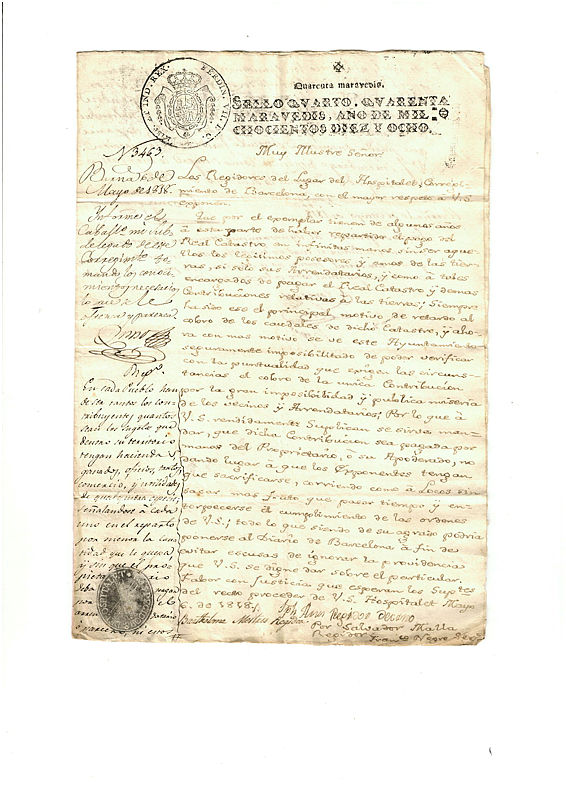 HISP. ET IND. REX. FERDIN. VII. D. G.
Quarenta maravedis.
SELLO QVARTO. QVARENTA
MARAVEDIS, AÑO DE MIL O
CHOCIENTOS DIEZ Y OCHO.
N. 3463.
Muy Illustre Señor
Mayo de 1818.
Los Regidores del Lugar del Hospitalet, Corregi-
miento de Barcelona, con el mayor respeto à V.S.
exponen:
Que por el exemplar tienen de algunos años
à esta parte de haber repartido el pago del
Real Catastro en infinitas manos, sin ser aque-
llos los legitimos posesores y amos de las tier-
ras, si solo sus Arrendatarios, y como à tales
encargados de pagar el Real Catastro y demas
Contribuciones relativas à las tierras; Siempre
ha sido ese el principal motivo de retardo al
cobro de los caudales de dicho Catastro, y aho-
ra con mas motivo se ve este Ayuntamiento
seguramente imposibilitado de poder verificar
con la puntualidad que exigen las circuns-
tancias el cobro de la unica Contribucion
por la gran imposibilidad y publica miseria
de los vecinos y Arrendatarios; Por lo que à
V.S. rendidamente Suplican se sirva man-
dar, que dicha Contribucion sea pagada por
manos del Proprietario, ò su Apoderado, no
dando lugar à que los Exponentes tengan
que sacrificarse, corriendo como à Locos sin
sacar mas fruto que pasar tiempo y en-
torpecerse el cumplimiento de las ordenes
de V.S; todo lo que siendo de su agrado podria
ponerse al Diario de Barcelona à fin de
evitar escusas de ignorar la providencias
que V.S. se digne dar sobre el particular.
Fabor con Justicia que esperan los Suptes
del recto proceder de V.S. Hospitalet Mayo
6. de 1818.
Regidor decano
Bartholome Regidor
Por Salvador Malla
Regidor
Informe el
Caballo
Corregimto
Repo.
En cada Pueblo han
de ser tantos los con-
tribuyentes, quantos
sean los sugetos que
dentro su territorio
tengan hacienda
ganados, oficios,
comercio, y utilidades
de qualquiera especie,
señalandose à cada
uno en el reparto
por menor la can-
tidad que le quepa